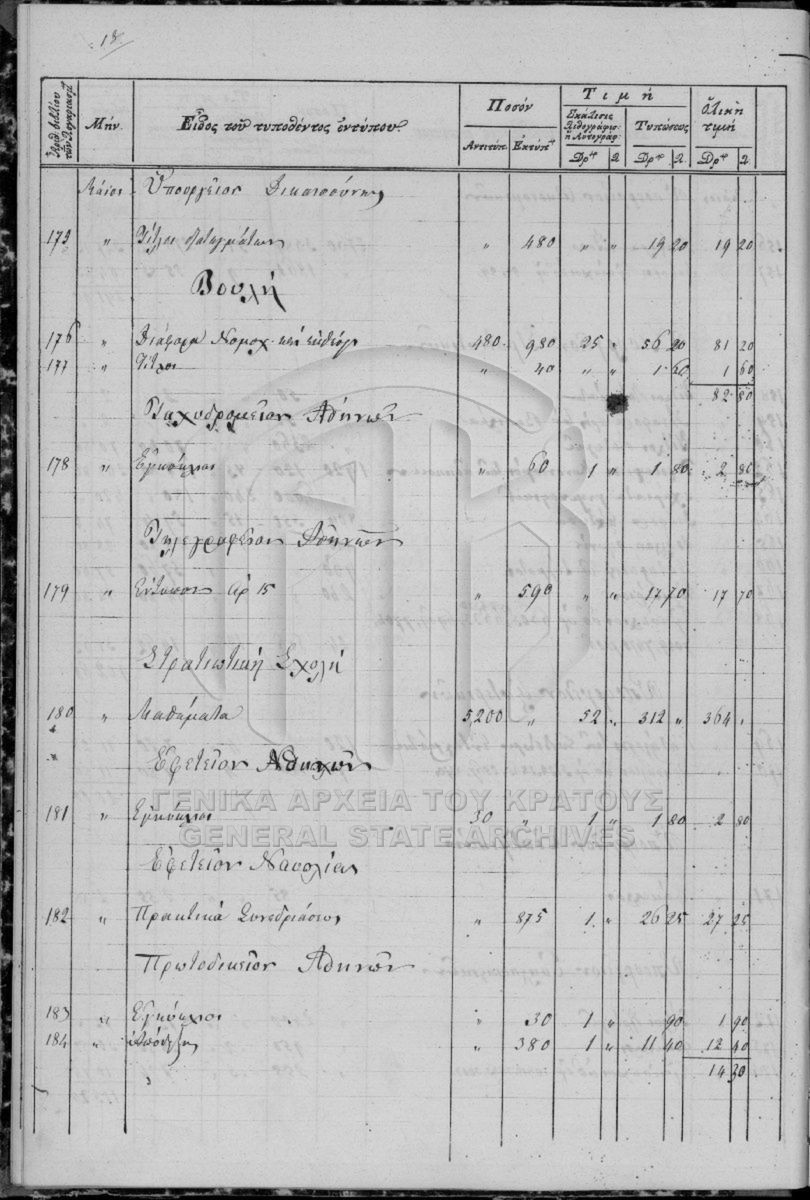 18
Τιμή
Ποσόν
Ὁλικὴ τιμή
Μήν. Εἶδος τοῦ τυποθέντος ἐντύπου. Ἀντιτύπ. Ἐκτύπ. Τυπώσεως
Δρ. Λ Δρ. Λ Δρ. Λ
Μάϊος Ὑπουργεῖον Δικαιοσύνης
175 " Τίτλοι " 480 " " 19 20 19 20
Βουλή
176 " Διάφορα Νομοσχ. καὶ 480 980 25 " 56 20 81 20
177 " Τίτλοι " 40 " " 1 60 1 60
82 80
Ταχυδρομεῖον Ἀθηνῶν
178 " Ἐγκύκλιοι " 60 1 " 1 80 2 80
Τηλεγραφεῖον Ἀθηνῶν
179 " Ἔντυπον Ἀρ 15 " 590 " " 17 70 17 70
Στρατιωτικὴ Σχολή
180 " Μαθήματα 5200 " 52 " 312 " 364 "
Ἐφετεῖον Ἀθηνῶν
ΓΕΝΙΚΑ ΑΡΧΕΙΑ ΤΟΥ ΚΡΑΤΟΥΣ
181 " Ἐγκύκλιοι 30 " 1 " 1 80 2 80
GENERAL STATE ARCHIVES
Ἐφετεῖον Ναυπλίας
182 " Πρακτικὰ Συνεδριάσεως " 875 1 " 26 25 27 25
Πρωτοδικεῖον Ἀθηνῶν
183 " Ἐγκύκλιοι " 30 1 " 90 1 90
184 " " 380 1 " 11 40 12 40
14 30